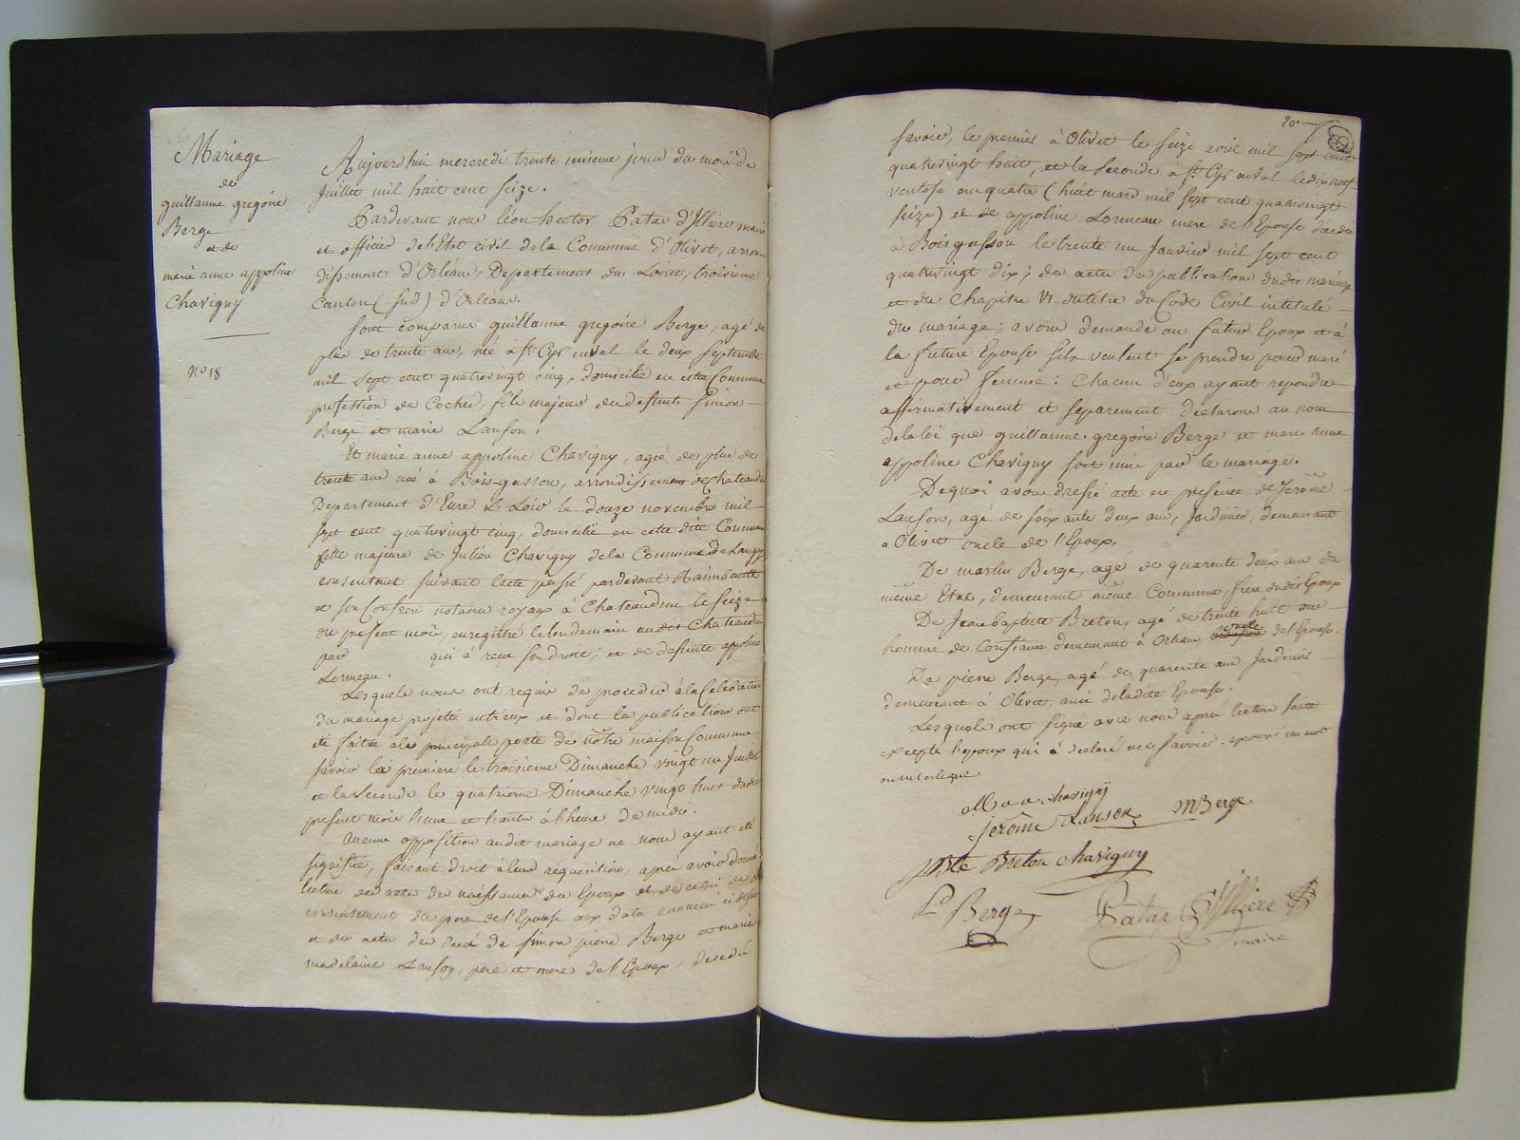 Mariage
de
guillaume gregoire
Berge
et de
marie anne appoline
Chavigny
No 18
Aujourd'hui mercredi trente unieme jour du mois de
Juillet mil huit cent seize.
Pardevant nous léon hector Patas d'Illiers maire
et officier de l'Etat civil de la Commune d'Olivet, arron
dissement d'Orléans, Departement du Loiret, troisieme
Canton (sud) d'Orléans.
sont comparus guillaume gregoire Berge, agé de
plus de trente ans, né à St Cyr en val le deux septembre
mil sept cent quatrevingt cinq, domicilié en cette Commune
profession de Cocher, fils majeur des defunts simon
Berge et marie Lanson.
Et marie anne appoline Chavigny, agée de plus de
trente ans née à Bois-gasson, arrondissement de Chateaudun
Departement d'Eure & Loir le douze novembre mil
sept cent quatrevingt cinq, domiciliée en cette dite Commune
fille majeure de Julien Chavigny de la Commune de
consentant suivant l'acte passé pardevant Raimbault
et son Confrere notaires royaux à Chateaudun le seize
du present mois, enregistré le lendemain audit Chateaudun
par qui a reçu son droit; et de defunte appoline
Lormeau.
Lesquels nous ont requis de proceder à la Celebration
du mariage projetté entr'eux et dont les publications ont
été faites à la principale porte de nôtre maison Commune
savoir la premiere le troisieme Dimanche vingt un Juillet
et la seconde le quatrieme Dimanche vingt huit dudit
present mois d'une et l'autre à l'heure de midi.
Aucune opposition audit mariage ne nous ayant été
signifiée, faisant droit à leur requisition, après avoir donné
lecture des actes de naissance des Epoux et de celui de
consentement du pere de l'Epouse aux dates
et des actes de decès de simon pierre Berge et marie
madelaine Lanson, pere et mere de l'Epoux, decedés
20
savoir, le premier à Olivet le seize avril mil sept cent
quatrevingt huit, et la seconde à St Cyr en val le dix neuf
ventose an quatre (huit mars mil sept cent quatrevingt
seize) et de appoline Lormeau mere de l'Epouse decedée
à Boisgasson le trente un Janvier mil sept cent
quatrevingt dix; des actes de publication dudit mariage
et du Chapitre VI du titre du Code Civil intitulé
du mariage; avons demandé au futur Epoux et à
la future Epouse s'ils veulent se prendre pour mari
et pour femme: Chacun d'eux ayant repondu
affirmativement et separement declarons au nom
de la loi que guillaume gregoire Berge et marie anne
appoline Chavigny sont unis par le mariage.
De quoi avons dressé acte en presence de Jerôme
Lanson, agé de soixante deux ans, Jardinier, demeurant
à Olivet oncle de l'Epoux,
De martin Berge, agé de quarente deux ans du
même Etat, demeurant même Commune, frere dudit Epoux
De Jean baptiste Breton, agé de trente huit ans
homme de Confiance demeurant à Orléans, oncle de l'Epouse.
De pierre Berge, agé de quarente ans Jardinier
demeurant à Olivet, ami de ladite Epouse.
Lesquels ont signé avec nous après lecture faite
excepté l'epoux qui a declaré ne le savoir. approuvé un mot
en interligne
M a a chavigny
jerôme Lanson MBerge
JBte Breton chavigny
P Berge
Patas d'Illiers
maire